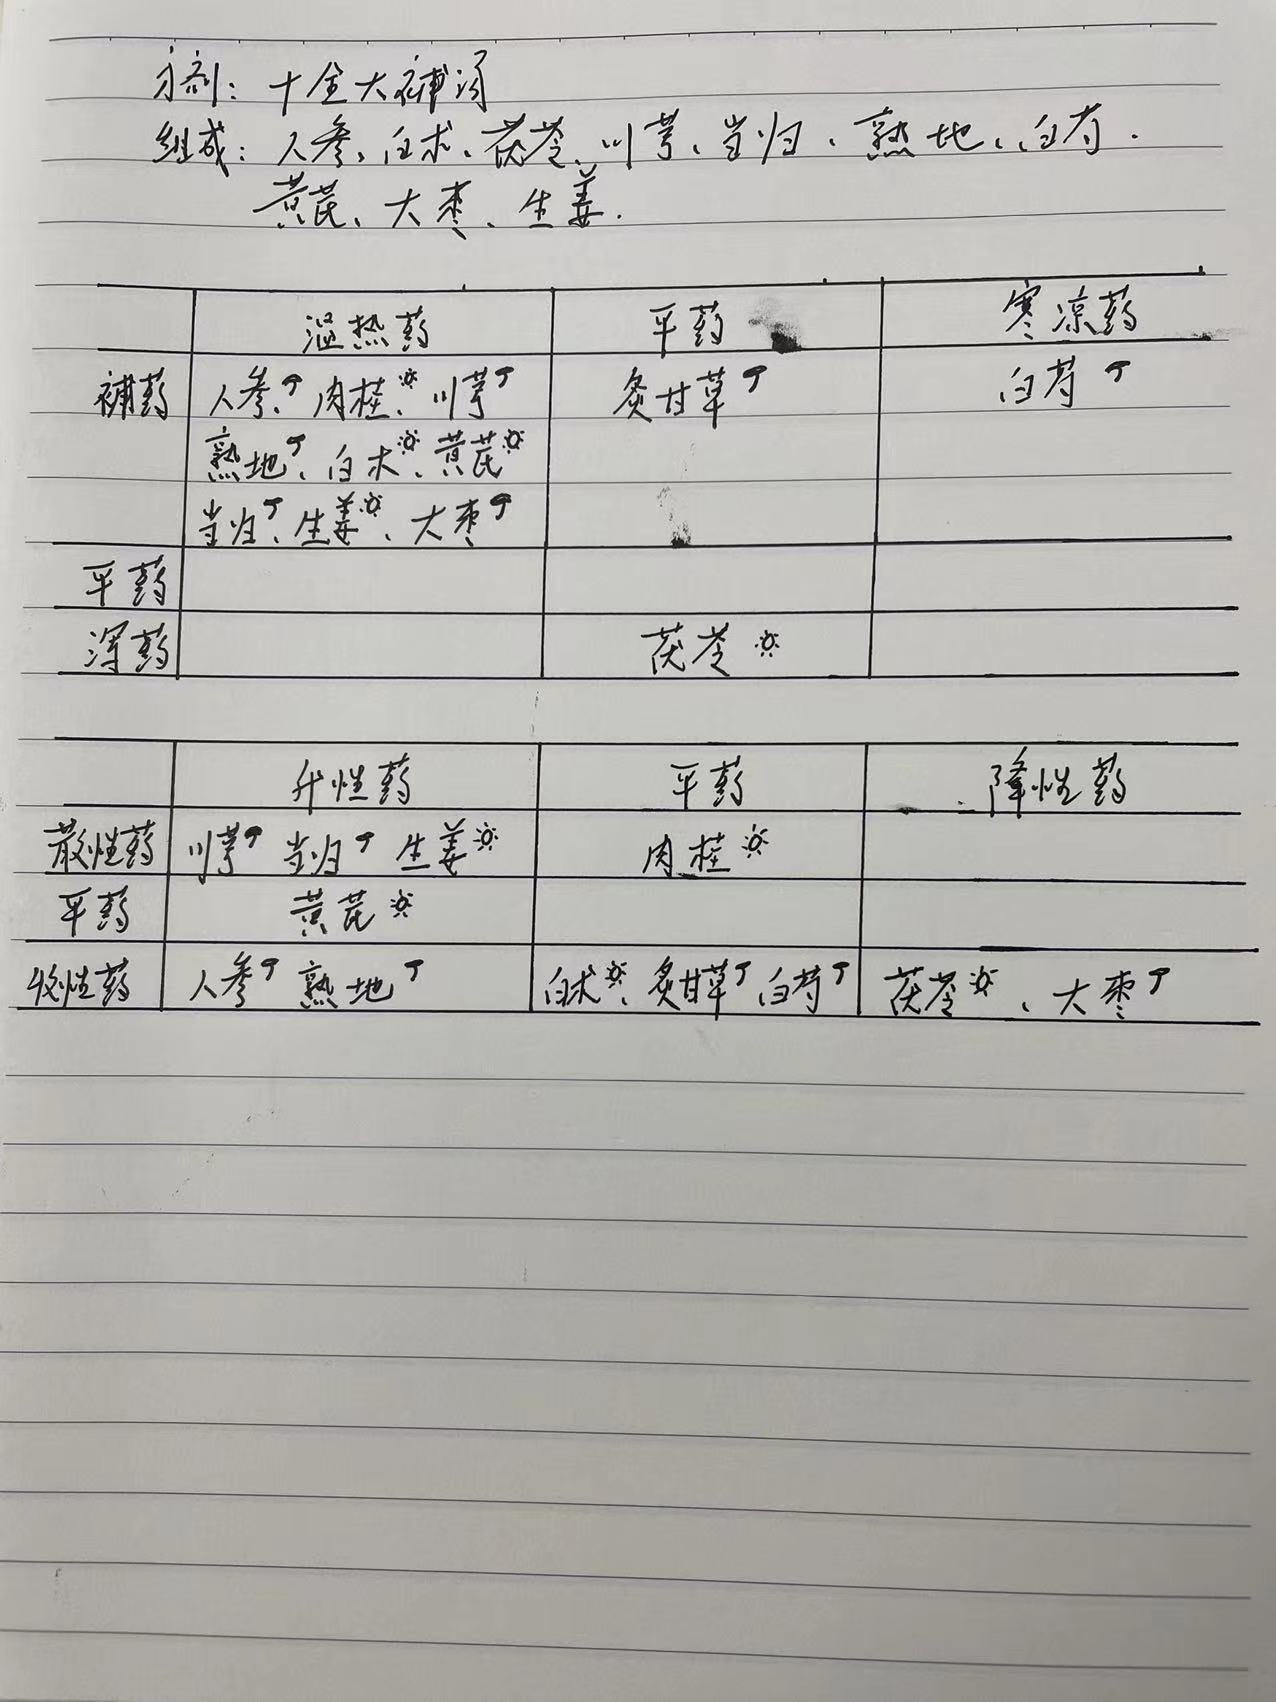 方剂：十全大補汤
组成：人参、白术、茯苓、川芎、当归、熟地、白芍.
黄芪、大枣、生姜.
温热药 平药 寒凉药
補药 人参、肉桂、川芎 炙甘草 白芍
熟地、白术、黄芪
当归、生姜、大枣
平药
泻药 茯苓
升性药 平药 降性药
散性药 川芎 当归 生姜 肉桂
平药 黄芪
收性药 人参 熟地 白术、炙甘草 白芍 茯苓、大枣